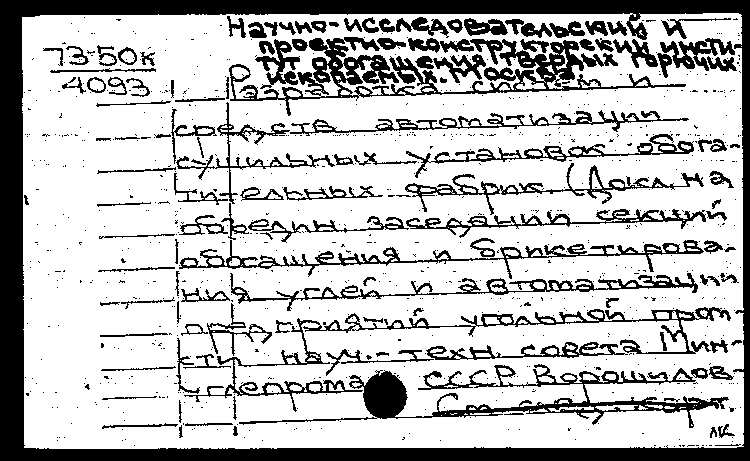 Научно-исследовательский и
проектно-конструкторский инсти-
тут обогащения твердых горючих
ископаемых. Москва.
73-50к
4093
Разработка систем и
средств автоматизации
сушильных установок обога-
тительных фабрик. (Докл. на
объедин. заседании секций
обогащения и брикетирова-
ния углей и автоматизации
предприятий угольной пром-
сти науч.-техн. совета Мин-
углепрома СССР. Ворошилов-
См. след. карт.